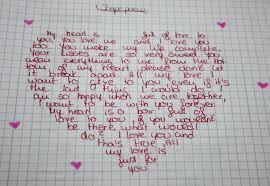 My heart is full of love to
you. You love me and I love you
too. You make my life complete.
Your kisses are so very sweet You
mean everything to me from the bot
tom of my heart please don't let
it break apart. All my love I
want to give to you even if it's
the last thing I would do. I
am so happy when we are together,
I want to be with you forever.
My heart is so full of
love to you if you wouldn't
be there, what would I
do? I love you and
that's true, all
my love is
just for
you